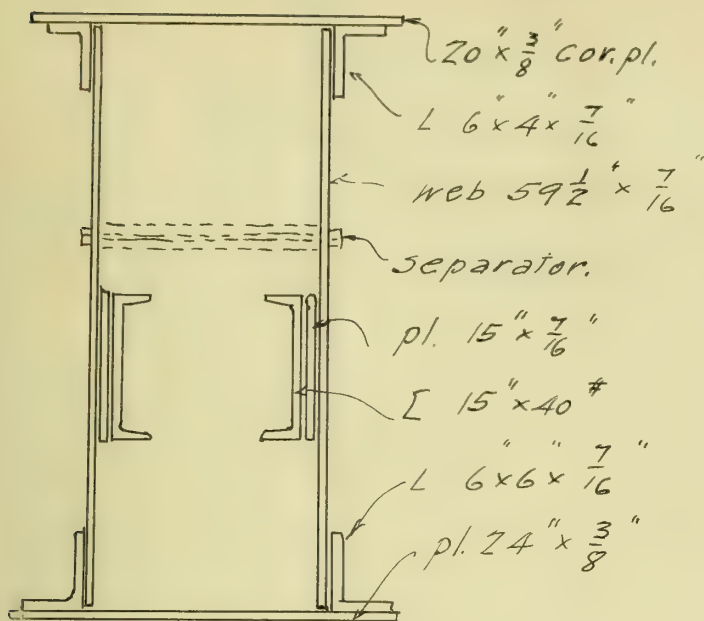 20" x 3/8" cor. pl.
L 6" x 4" x 7/16"
web 59 1/2" x 7/16"
separator.
pl. 15" x 7/16"
[ 15" x 40 #
L 6" x 6" x 7/16"
pl. 24" x 3/8"